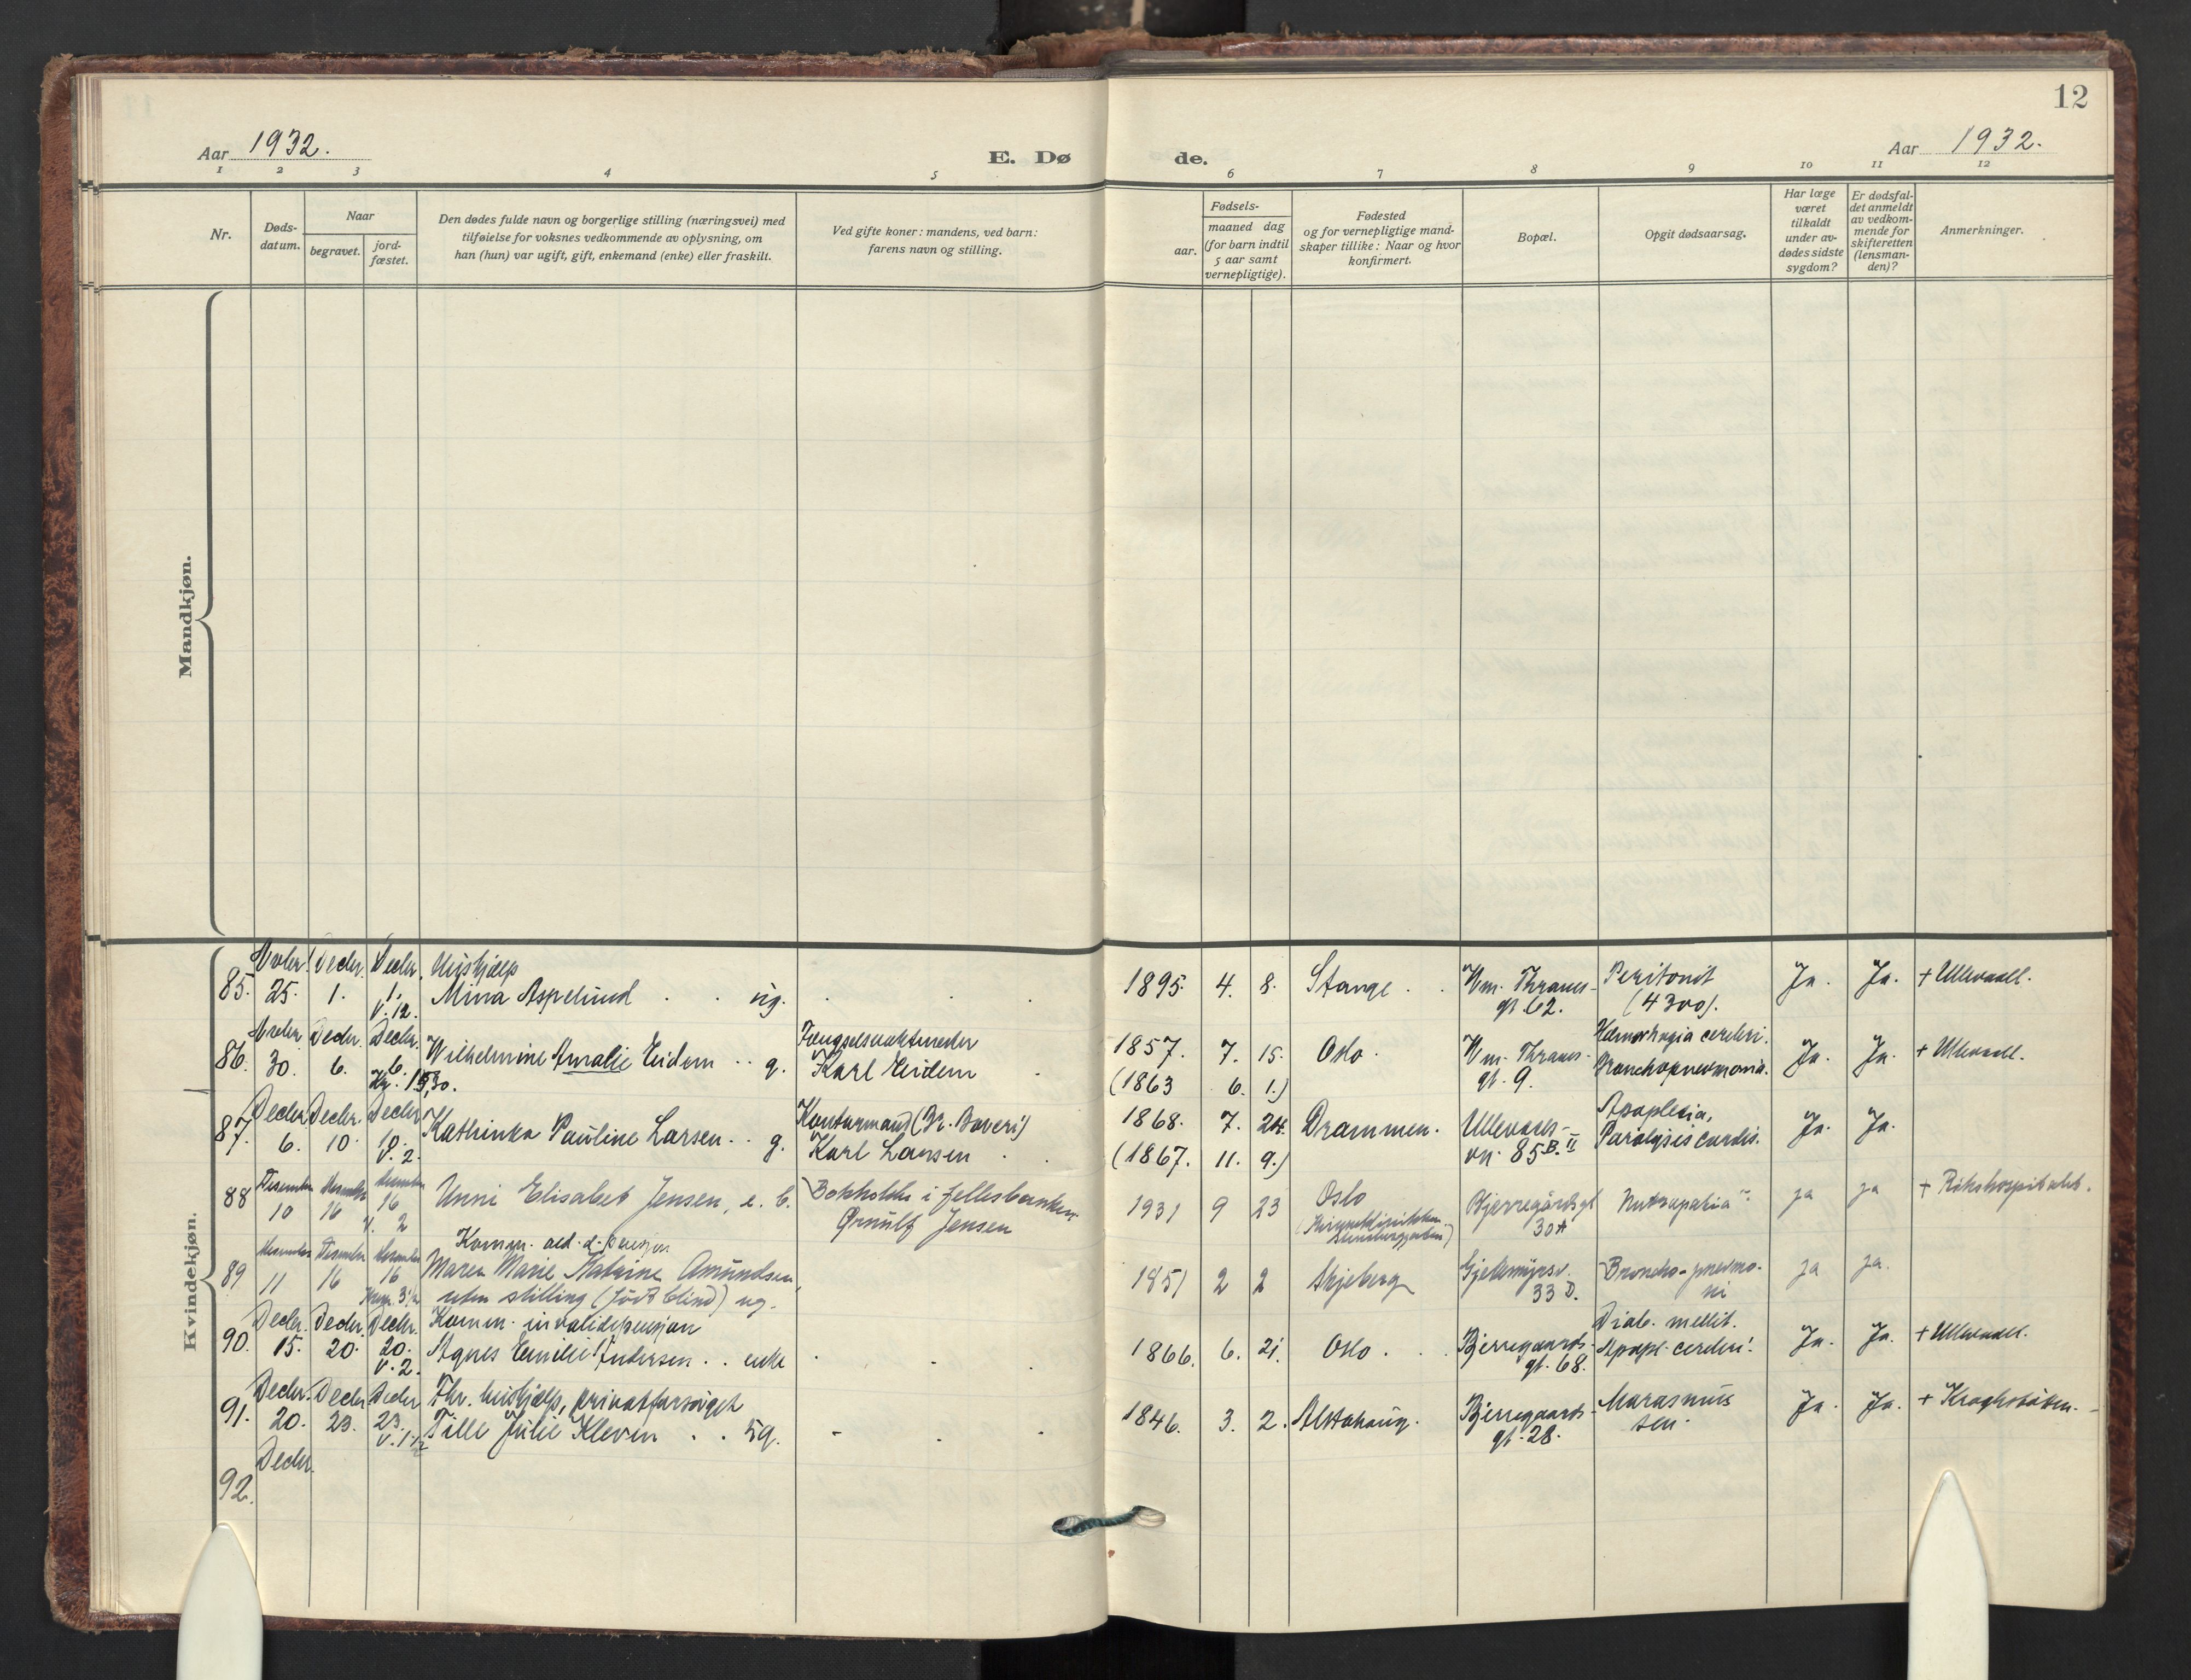 12
Aar 1932.
E. Dø de.
Aar 1932.
1 2 3 4 5 6 7 8 9 10 11 12
Nr.
Døds-
datum.
Naar
begravet.
jord-
fæstet.
Den dødes fulde navn og borgerlige stilling (næringsvei) med
tilføielse for voksnes vedkommende av oplysning, om
han (hun) var ugift, gift, enkemand (enke) eller fraskilt.
Ved gifte koner: mandens, ved barn:
farens navn og stilling.
Fødsels-
aar.
maaned dag
(for barn indtil
5 aar samt
vernepligtige).
Fødested
og for vernepligtige mand-
skaper tillike: Naar og hvor
konfirmert.
Bopæl.
Opgit dødsaarsag.
Har læge
været
tilkaldt
under av-
dødes sidste
sygdom?
Er dødsfal-
det anmeldt
av vedkom-
mende for
skifteretten
(lensman-
den)?
Anmerkninger.
Mandkjøn.
Kvindekjøn.
Novbr. Decbr. Decbr. Hushjælp
85. 25. 1. 1. Mina Aspelund . . ug. 1895. 4. 8. Stange . Wm. Thranes- Peritonit Ja. Ja. + Ullevaal.
V. 12. gt. 62. (4300).
Novbr. Decbr. Decbr. Hæmorhagia cerebri.
86. 30. 6. 6. Wilhelmine Amalie Eidem . . g. Karl Eidem 1857. 7. 15. Oslo. Wm. Thranes- Bronchopneumonia. Ja. Ja. + Ullevaal.
(1863 6. 1.) gt. 9.
Decbr. Decbr. Decbr. Kontormand (Br. Boveri) Apoplexia,
87. 6. 10. 10. Kathinka Pauline Larsen . . g. Karl Larsen 1868. 7. 24. Drammen. Ullevaals- Paralysis cordis. Ja. Ja.
V. 2. (1867. 11. 9.) vn. 85 B. II
Desember Desember Desember Bokholder i Fellesbanken
88 10 16 16 Unni Elisabet Jensen, e. b. Ørnulf Jensen 1931 9 23 Oslo Bjerregårdsgt ja ja + Rikshospitalet.
V. 2 30A
Desember Desember Desember Komm. ald. d. pensjon
89 11 16 16 Maren Marie Katrine Amundsen, 1851 2 2 Skjeberg Gjetemyrsv. Broncho-pneumo- ja ja.
uten stilling (født blind) ug. 33 D. ni
Decbr. Decbr. Decbr. Komm. invalidepensjon Diab. mellit.
90. 15. 20. 20. Agnes Emilie Andersen . . enke 1866. 6. 21. Oslo . . Bjerregaards- Apopl. cerebri. Ja. Ja. + Ullevaal.
V. 2. gt. 68.
Decbr. Decbr. Decbr. Fhv. hushjælp, privat forsørget
91. 20. 23. 23. Tille Julie Kleven . . ug. - 1846. 3. 2. Alstahaug. Bjerregaards- Marasmus Ja. Ja. +
V. 1½ gt. 28. sen.
Decbr.
92.